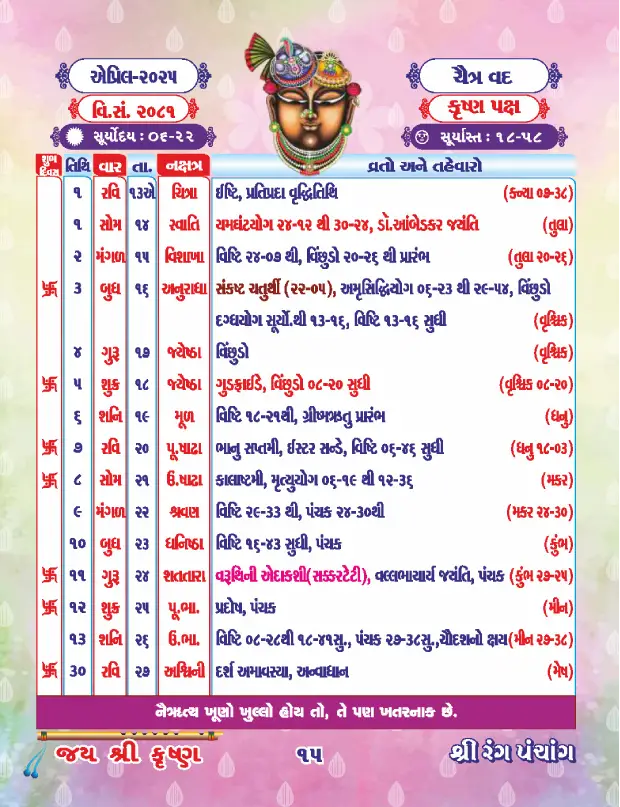 એપ્રિલ-૨૦૨૫
ચૈત્ર વદ
વિ.સં. ૨૦૮૧
કૃષ્ણ પક્ષ
સૂર્યોદય : ૦૬-૨૨
સૂર્યાસ્ત : ૧૮-૫૮
શુભ દિવસ તિથિ વાર તા. નક્ષત્ર વ્રતો અને તહેવારો
૧ રવિ ૧૩એ ચિત્રા ઈષ્ટિ, પ્રતિપ્રદા વૃદ્ધિતિથિ (કન્યા ૦૭-૩૮)
૧ સોમ ૧૪ સ્વાતિ યમઘંટયોગ ૨૪-૧૨ થી ૩૦-૨૪, ડૉ.આંબેડકર જયંતિ (તુલા)
૨ મંગળ ૧૫ વિશાખા વિષ્ટિ ૨૪-૦૭ થી, વિંછુડો ૨૦-૨૬ થી પ્રારંભ (તુલા ૨૦-૨૬)
卐 ૩ બુધ ૧૬ અનુરાધા સંકષ્ટ ચતુર્થી (૨૨-૦૫), અમૃસિદ્ધિયોગ ૦૬-૨૩ થી ૨૯-૫૪, વિંછુડો
દગ્ધયોગ સૂર્યો.થી ૧૩-૧૬, વિષ્ટિ ૧૩-૧૬ સુધી (વૃશ્ચિક)
૪ ગુરૂ ૧૭ જ્યેષ્ઠા વિંછુડો (વૃશ્ચિક)
卐 ૫ શુક્ર ૧૮ જ્યેષ્ઠા ગુડફ્રાઈડે, વિંછુડો ૦૮-૨૦ સુધી (વૃશ્ચિક ૦૮-૨૦)
૬ શનિ ૧૯ મૂળ વિષ્ટિ ૧૮-૨૧થી, ગ્રીષ્મઋતુ પ્રારંભ (ધનુ)
卐 ૭ રવિ ૨૦ પૂ.ષાઢા ભાનુ સપ્તમી, ઈસ્ટર સન્ડે, વિષ્ટિ ૦૬-૪૬ સુધી (ધનુ ૧૮-૦૩)
卐 ૮ સોમ ૨૧ ઉ.ષાઢા કાલાષ્ટમી, મૃત્યુયોગ ૦૬-૧૯ થી ૧૨-૩૬ (મકર)
૯ મંગળ ૨૨ શ્રવણ વિષ્ટિ ૨૯-૩૩ થી, પંચક ૨૪-૩૦થી (મકર ૨૪-૩૦)
૧૦ બુધ ૨૩ ધનિષ્ઠા વિષ્ટિ ૧૬-૪૩ સુધી, પંચક (કુંભ)
卐 ૧૧ ગુરૂ ૨૪ શતતારા વરૂથિની એદાકશી(સક્કરટેટી), વલ્લભાચાર્ય જયંતિ, પંચક (કુંભ ૨૭-૨૫)
卐 ૧૨ શુક્ર ૨૫ પૂ.ભા. પ્રદોષ, પંચક (મીન)
૧૩ શનિ ૨૬ ઉ.ભા. વિષ્ટિ ૦૮-૨૮થી ૧૮-૪૧સુ., પંચક ૨૭-૩૮સુ.,ચૌદશનો ક્ષય(મીન ૨૭-૩૮)
卐 ૩૦ રવિ ૨૭ અશ્વિની દર્શ અમાવસ્યા, અન્વાધાન (મેષ)
નૈઋત્ય ખૂણો ખુલ્લો હોય તો, તે પણ ખતરનાક છે.
જય શ્રી કૃષ્ણ
૧૫
શ્રી રંગ પંચાંગ